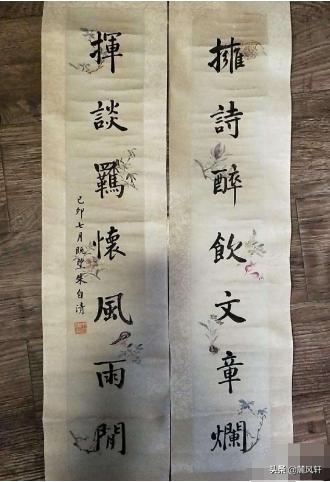 擁詩醉飲文章爛
揮談羈懷風雨閒
己卯七月既望朱自清
头条 @麓风轩